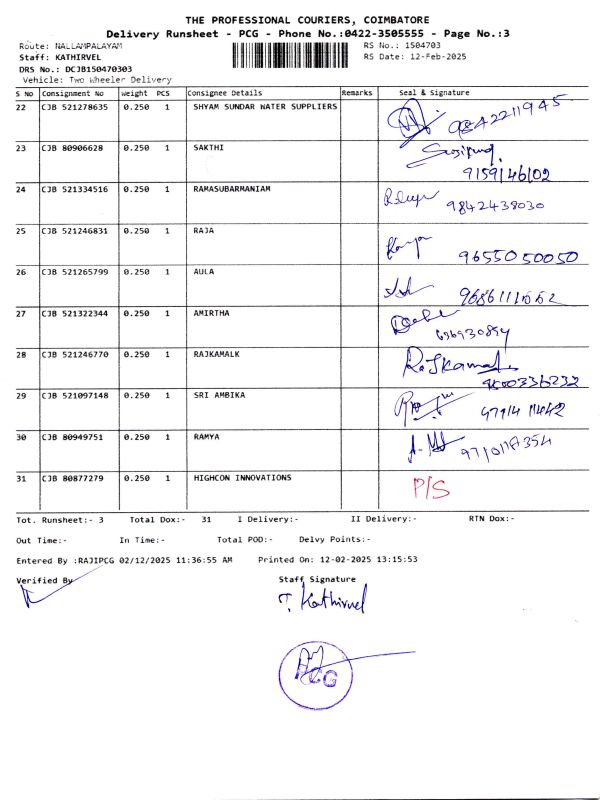 THE PROFESSIONAL COURIERS, COIMBATORE
Delivery Runsheet - PCG - Phone No.:0422-3505555 - Page No.:3
Route: NALLAMPALAYAM RS No.: 1504703
Staff: KATHIRVEL RS Date: 12-Feb-2025
DRS No.: DCJB150470303
Vehicle: Two Wheeler Delivery
S No Consignment No Weight PCS Consignee Details Remarks Seal & Signature
22 CJB 521278635 0.250 1 SHYAM SUNDAR WATER SUPPLIERS 9842211945
23 CJB 80906628 0.250 1 SAKTHI
9159146102
24 CJB 521334516 0.250 1 RAMASUBARMANIAM
9842438030
25 CJB 521246831 0.250 1 RAJA
9655050050
26 CJB 521265799 0.250 1 AULA
27 CJB 521322344 0.250 1 AMIRTHA
28 CJB 521246770 0.250 1 RAJKAMALK R.JKamal
9500336232
29 CJB 521097148 0.250 1 SRI AMBIKA
30 CJB 80949751 0.250 1 RAMYA
31 CJB 80877279 0.250 1 HIGHCON INNOVATIONS P/S
Tot. Runsheet:- 3 Total Dox:- 31 I Delivery:- II Delivery:- RTN Dox:-
Out Time:- In Time:- Total POD:- Delvy Points:-
Entered By :RAJIPCG 02/12/2025 11:36:55 AM Printed On: 12-02-2025 13:15:53
Verified By Staff Signature
T. Kathirvel
PCG